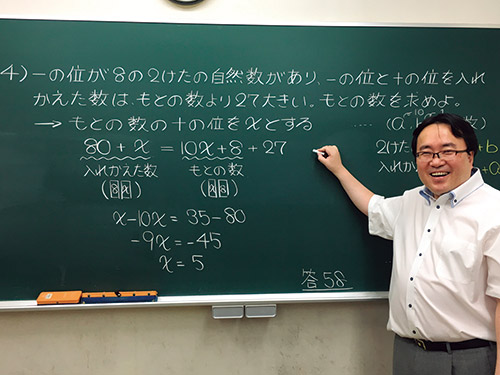 4) 一の位が8の2けたの自然数があり、一の位と十の位を入れ
かえた数は、もとの数より27大きい。もとの数を求めよ。
→ もとの数の十の位をxとする
80 + x = 10x+8 + 27
入れかえた数 もとの数
(8x) (x8)
x-10x = 35-80
-9x = -45
x = 5
答 58
2けた
入れか